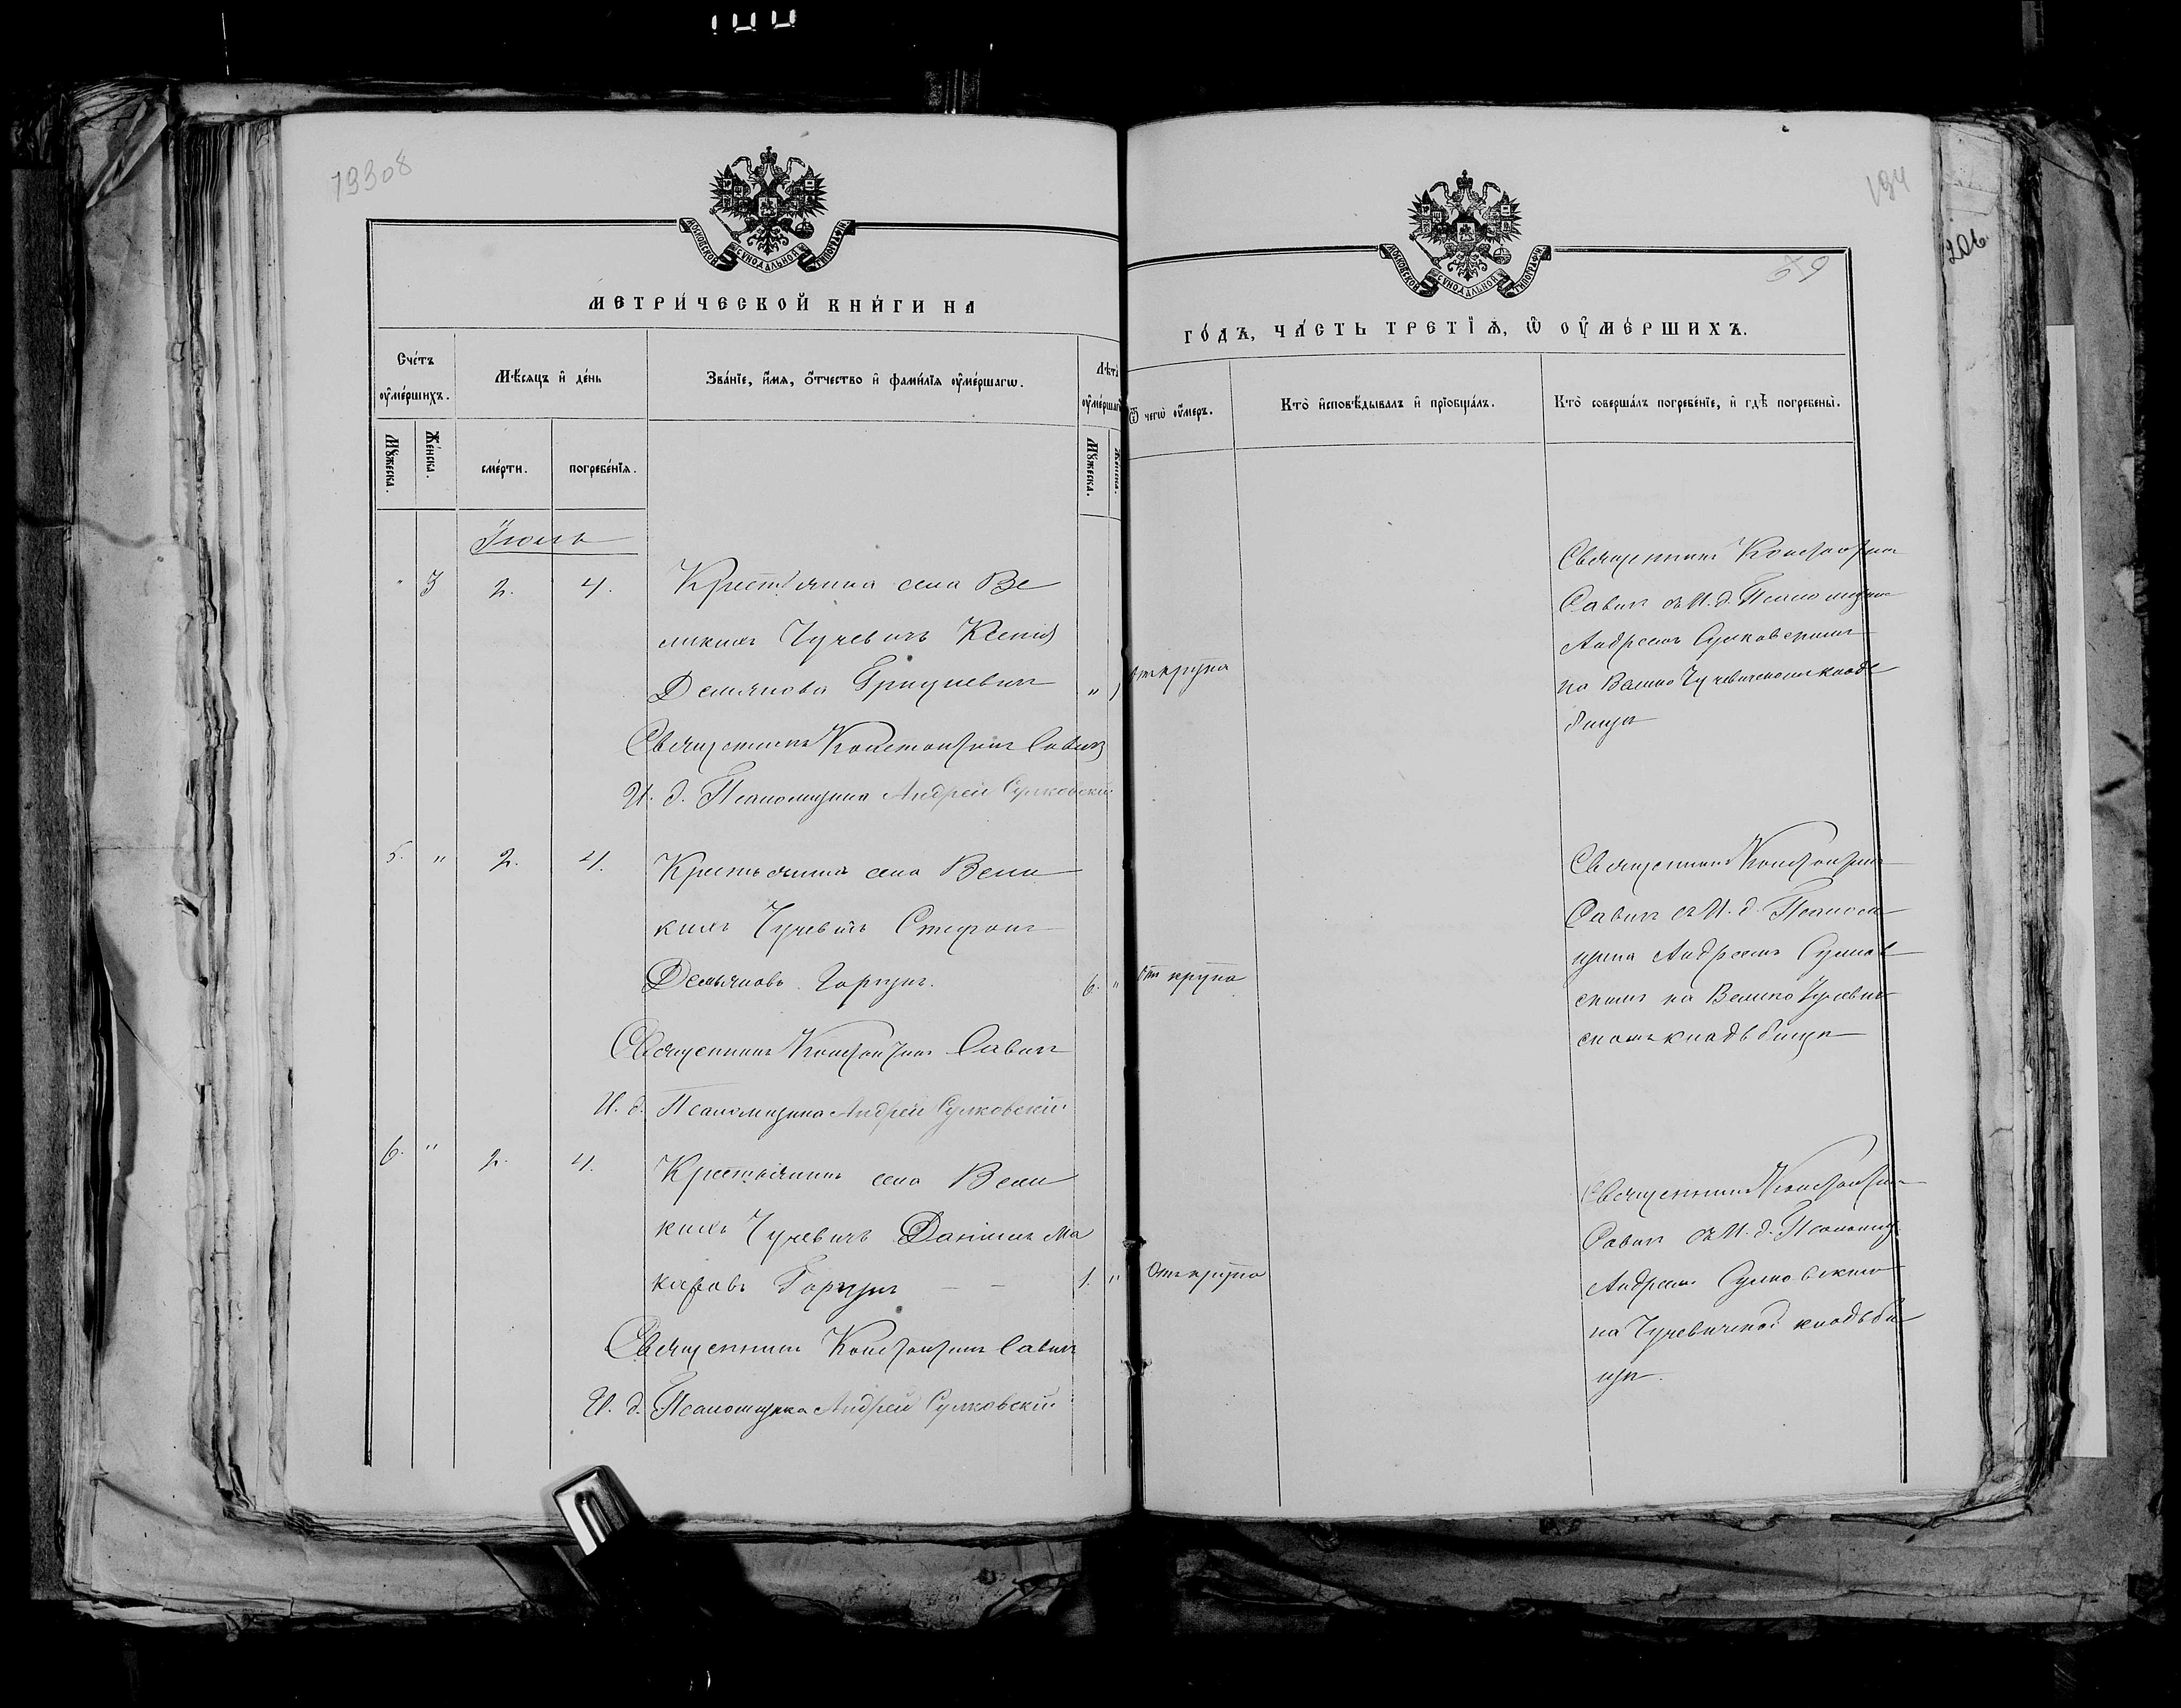 19308
МОСКОВСКОЙ СѴНОДАЛЬНОЙ ТИПОГРАФІИ
МЕТРИ́ЧЕСКОЙ КНИ́ГИ НА
Сче́тъ ᲂу҆ме́ршихъ.
Мѣ́сяцъ и҆ де́нь
Зва́нїе, и҆́мѧ, ѻ҆́тчество и҆ фами́лїѧ ᲂу҆ме́ршагѡ.
Лѣта̀ ᲂу҆ме́ршаг
Мꙋ́жеска.
Же́нска.
сме́рти.
погребе́нїѧ.
Мꙋ́жеска.
Же́нска.
Іюль
" 3 2. 4. Крестьянина села Ве
ликихъ Чучевичъ Ксенія
Демянова Грицкевичъ "
Священникъ Константинъ Савичъ
И. д. Псаломщика Андрей Сулковскій
5. " 2. 4. Крестьянинъ села Вели
кихъ Чучевичъ Стефанъ
Демьяновъ Горгунъ. 6. "
Священникъ Константинъ Савичъ
И. д. Псаломщика Андрей Сулковскій
6. " 2. 4. Крестьянинъ села Вели
кихъ Чучевичъ Даніилъ Ма
каровъ Горгунъ — — 1. "
Священникъ Константинъ Савичъ
И. д. Псаломщика Андрей Сулковскій
194
206.
69
МОСКОВСКОЙ СѴНОДАЛЬНОЙ ТИПОГРАФІИ
ГО́ДЪ, ЧА́СТЬ ТРЕТІѦ, Ѡ҆ ОУ҆МЕ́РШИХЪ.
Ѿ чегѡ̀ ᲂу҆́меръ.
Кто̀ и҆сповѣ́дывалъ и҆ прїобща́лъ.
Кто̀ соверша́лъ погребе́нїе, и҆ гдѣ̀ погребены̀.
Священникъ Константинъ
Савичъ съ И. д. Псаломщика
Андреемъ Сулковскимъ
отъ крупа
на Велико Чучевичскомъ кладб
бищѣ
Священникъ Константинъ
Савичъ съ И. д. Псалом
щика Андреемъ Сулков
отъ крупа
скимъ на Велико Чучевич
скомъ кладьбищѣ
Священникъ Константинъ
Савичъ съ И. д. Псаломщ
отъ крупа
Андреемъ Сулковскимъ
на Чучевичской кладьби
щѣ.